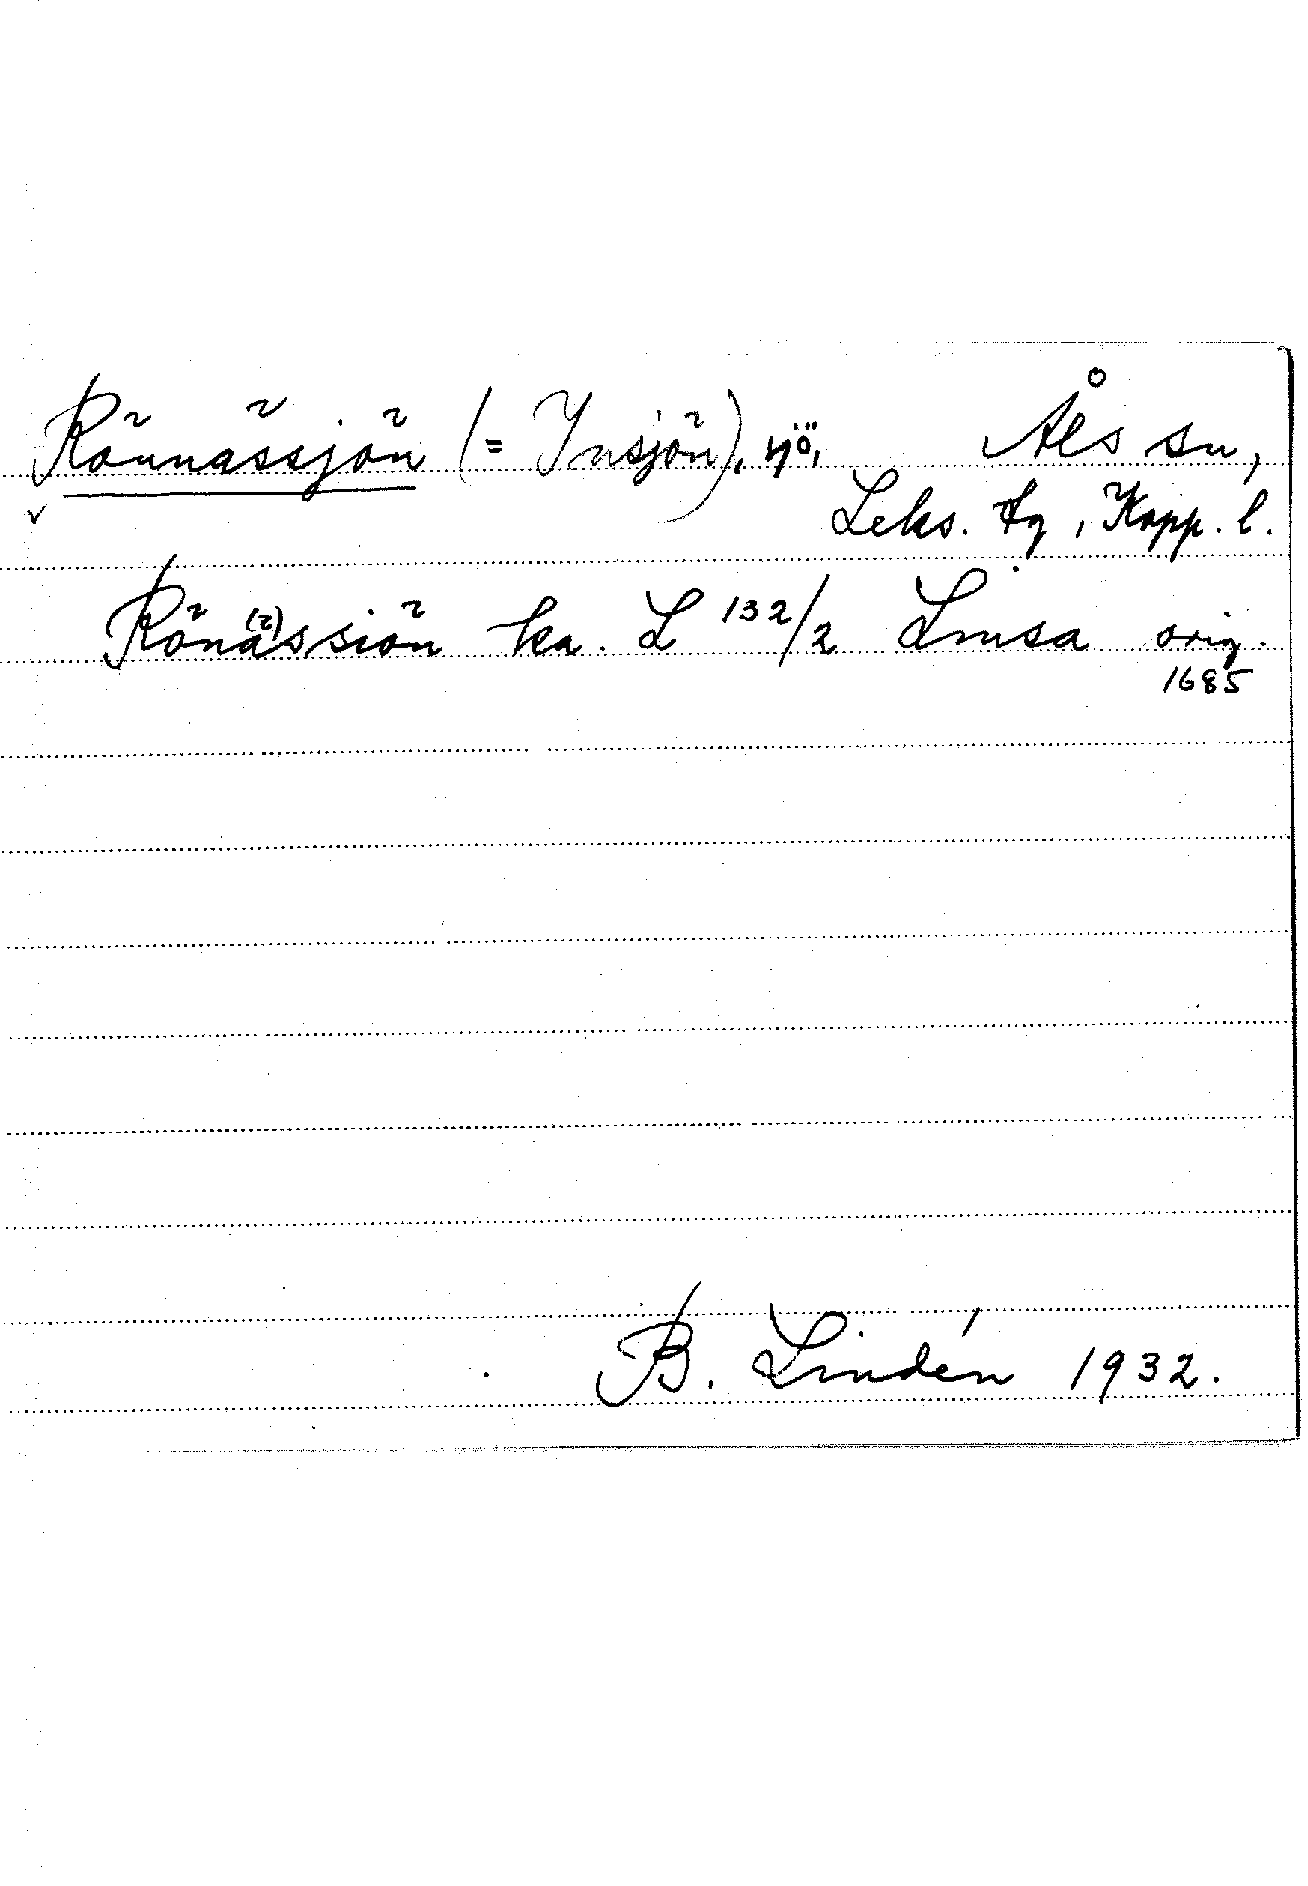 Rönnässjön (= Insjön), sjö, Åls sn,
Leks. tg, Kopp. l.
Rönässiön ka. L 132/2 Limsa orig.
1685
B. Lindén 1932.